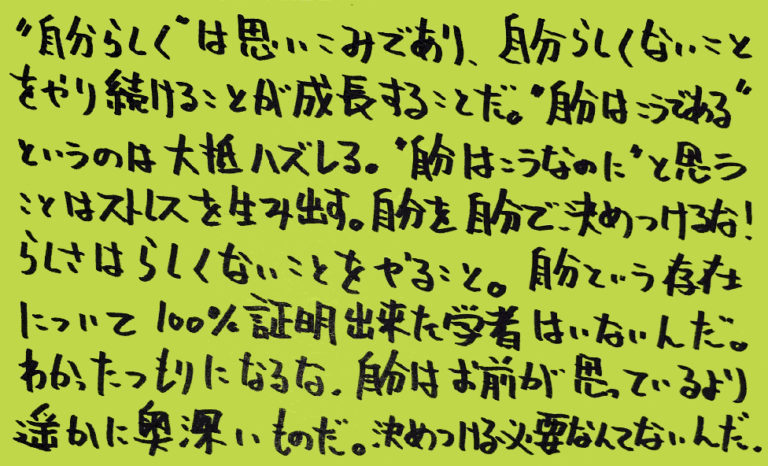 "自分らしく"は思いこみであり、自分らしくないこと
をやり続けることが成長することだ。"自分はこうである"
というのは大抵ハズレる。"自分はこうなのに"と思う
ことはストレスを生み出す。自分を自分で決めつけるな!
らしさはらしくないことをやること。自分という存在
について100%証明出来た学者はいないんだ。
わかったつもりになるな、自分はお前が思っているより
遥かに奥深いものだ。決めつける必要なんてないんだ.